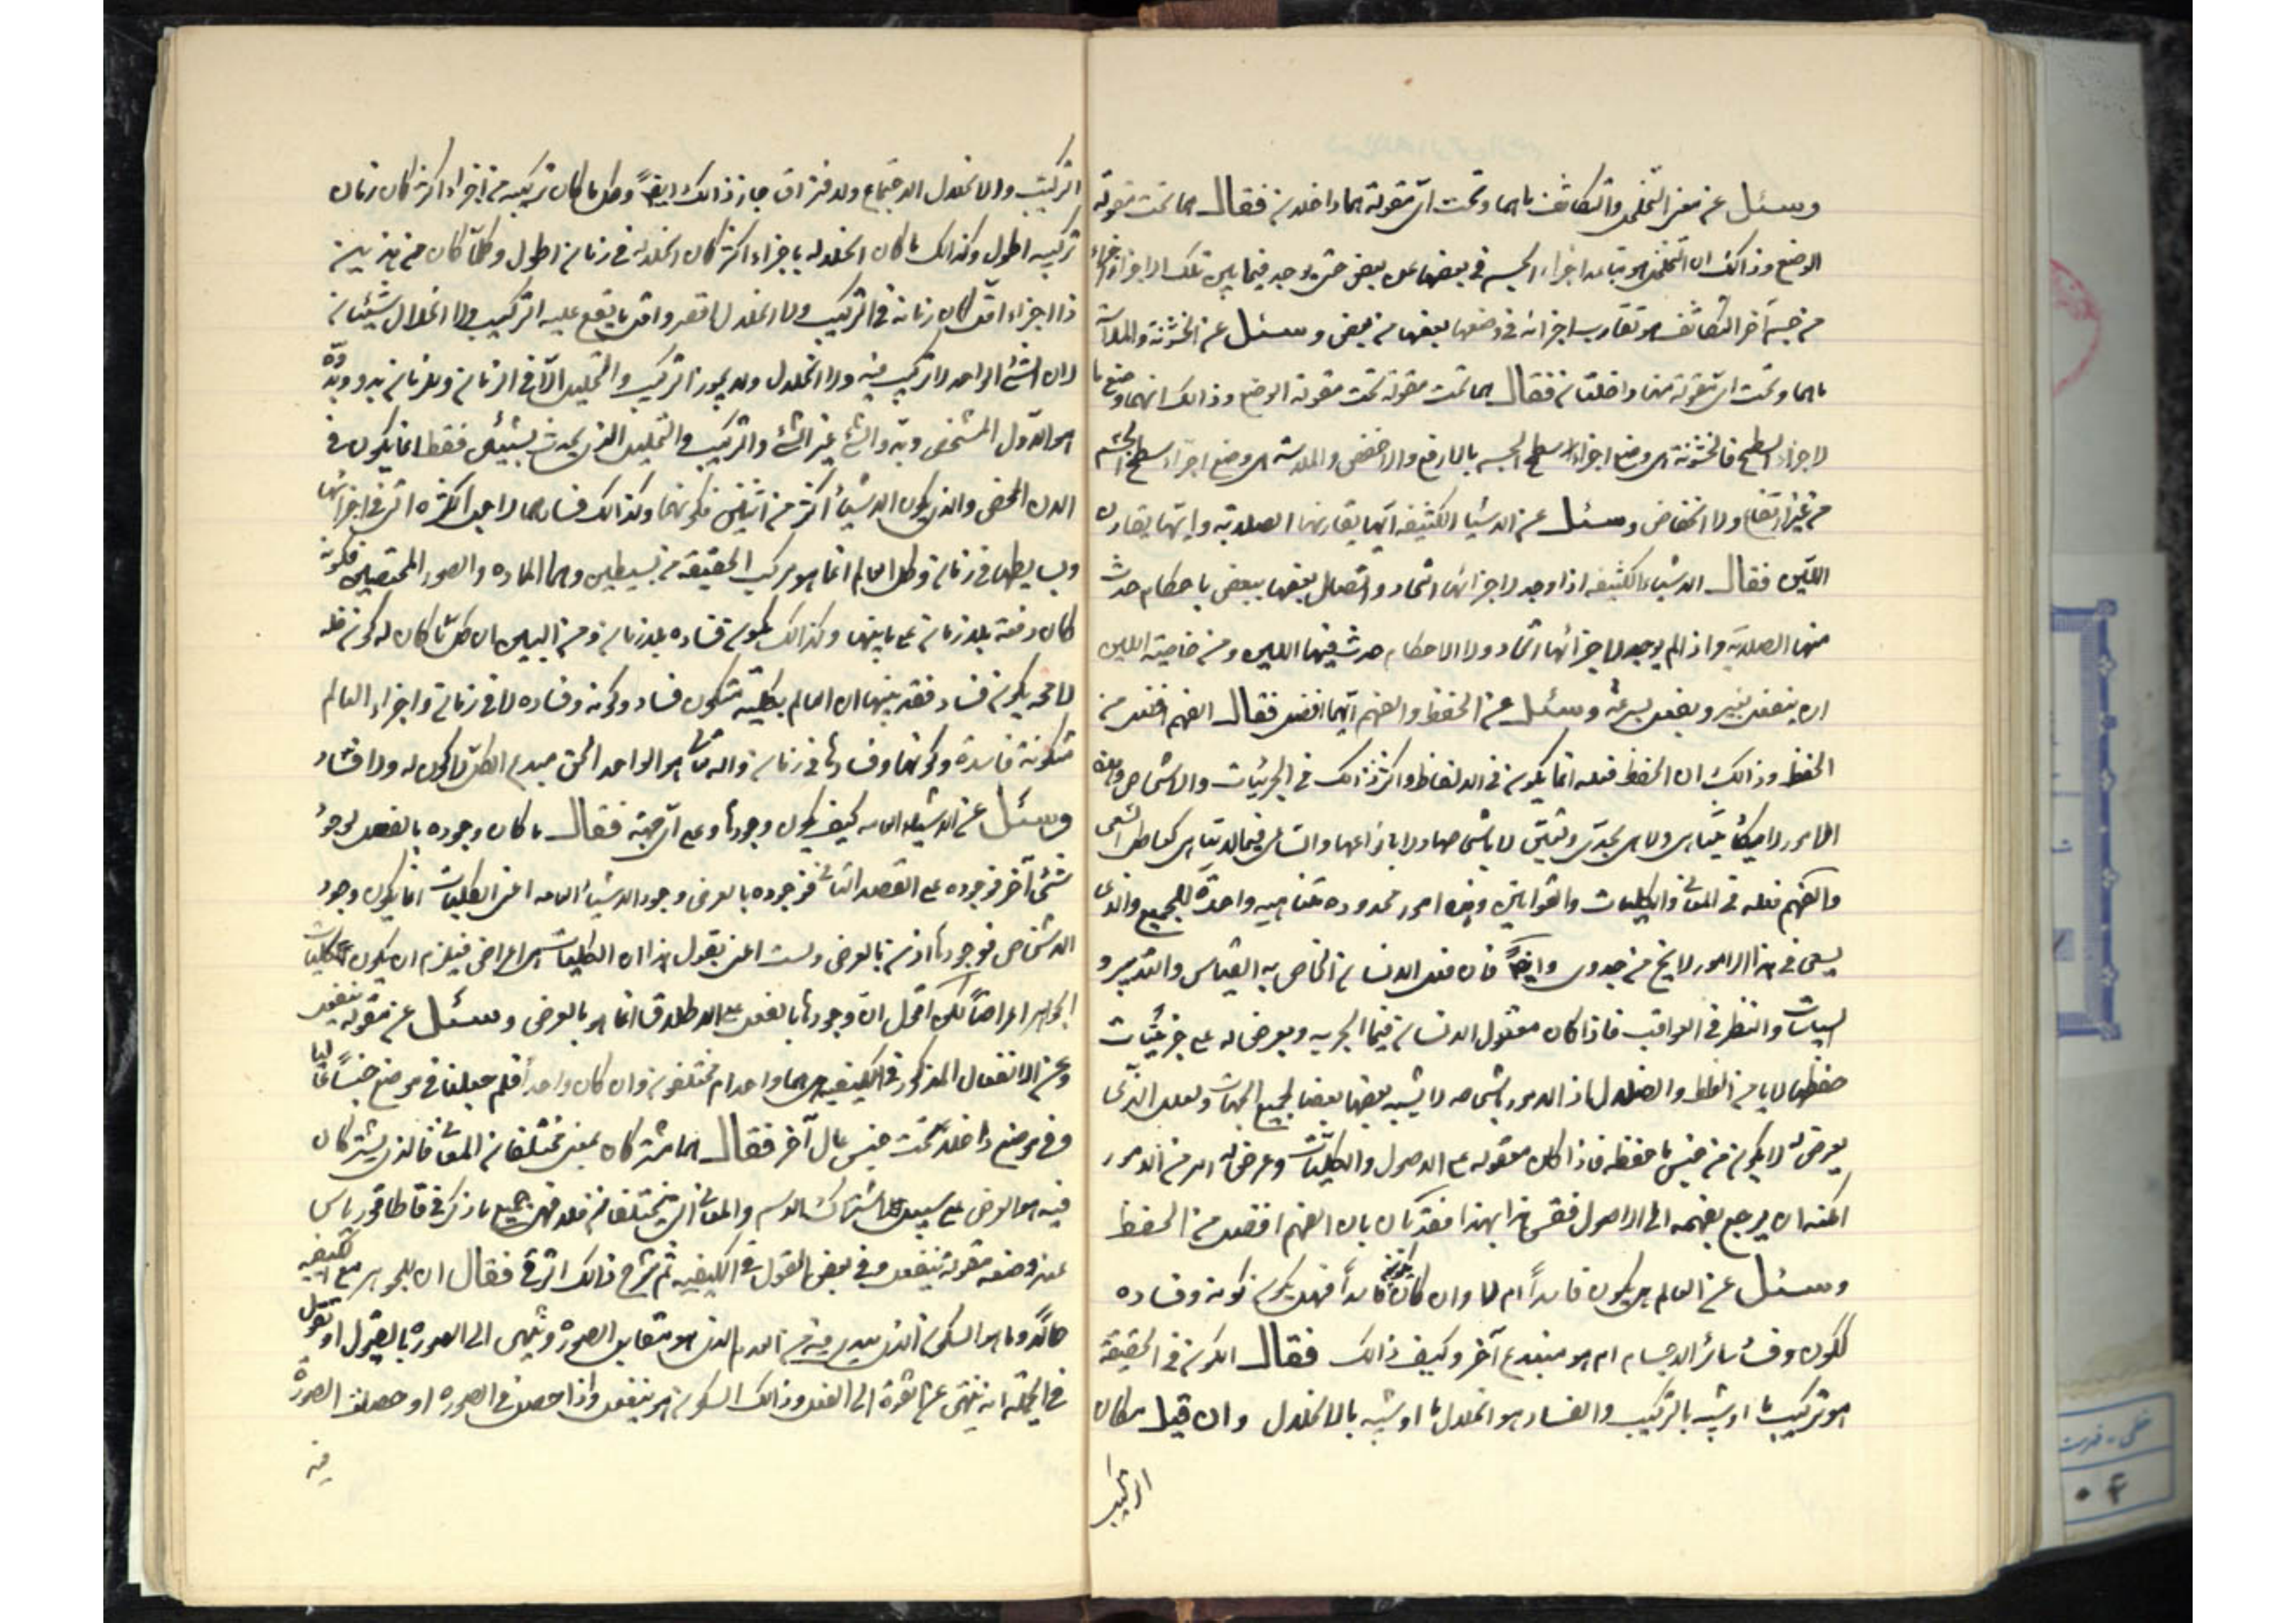 وسئل عن معنى التخلخل والتكاثف ما هما وتحت اى مقولة هما داخلان فقال هما تحت مقولة
الوضع وذالك ان التخلخل هو تباعد اجزاء الجسم فى بعضها عن بعض حتى يوجد فيما بين تلك الاجزاء اجزاء
من جسم آخر التكاثف هو تقارب اجزائه فى وضعها بعضها من بعض وسئل عن الخشونة والملاسة
ما هما وتحت اى مقولة منها داخلتان فقال هما تحت مقولة تحت مقولة الوضع وذالك انهما وضع ما
لاجزاء السطح فالخشونة هى وضع اجزاء سطح الجسم بالارفع والاخفض والملاسة هى وضع اجزاء سطح الجسم
من غير ارتفاع ولا انخفاض وسئل عن الاشيا الكثيفه ايها يقارنها الصلابة وايها يقارن
اللين فقال الاشياء الكثيفه اذا وجد لاجزائها اتحاد واتصال بعضها ببعض باحكام حدث
منها الصلابة واذا لم يوجد لاجزائها اتحاد ولا احكام حدث فيها اللين ومن خاصية اللين
ان ينفعل بيسير ويفعل بسرعة وسئل عن الحفظ والفهم ايهما افضل فقال الفهم افضل من
الحفظ وذالك ان الحفظ فعله انما يكون فى الالفاظ واكثر ذالك فى الجزئيات والاشخاص وهذه
الامور لا يكاد يتناهى ولا هى يجدى وتغنى لا باشخاصها ولا بانواعها والساعى فيما لا يتناهى كباطل السعى
والفهم فعله فى المعانى والكليات والقوانين وهذه امور محدوده متناهيه واحدة للجميع والذى
يسعى فى هذا الامور لا يخ من جدوى وايضاً فان فعل الانسان الخاص به القياس والتدبير و
لسياسات والنظر فى العواقب فاذا كان معقول الانسان فيما يجربه ويعرض له على جزئيات
حفظها لا يامن الغلط والضلال اذ الامور باشخاصه لا يشبه بعضها بعضا بجميع الجهات ولعل الذى
يعرض له لا يكون من جنس ما حفظه فاذا كان معقوله على الاصول والكليات وعرض له امر من الامور
امكنه ان يرجع بفهمه الى الاصول فقس هذا بهذا فقد بان بان الفهم افضل من الحفظ
وسئل عن العالم هل يكون فاسداً ام لا وان كان يكون فاسداً فهل يكون كونه وفساده
ككون وفساد سائر الاجسام ام هو مبتدع آخر وكيف ذالك فقال الكون فى الحقيقة
هو تركيب ما او شبه بالتركيب والفساد هو انحلال ما او شبه بالانحلال وان قيل مكان
التركيب
التركيب والانحلال الاجتماع والافتراق جاز ذالك ايضاً وكل ما كان تركيبه من اجزاء اكثر كان زمان
تركيبه اطول وكذالك ما كان انحلاله باجزاء اكثر كان انحلاله فى زمان اطول وكلما كان من هذين
ذا اجزاء اقل كان زمانه فى التركيب والانحلال اقصر واقل ما يقع عليه التركيب والانحلال شيئان
لان الشئ الواحد لا تركيب فيه ولا انحلال ولا يجوز التركيب والتحليل الا فى الزمان وللزمان بدو وبدؤه
هو الاول المشخص وبدو الشئ غير الشئ والتركيب والتحليل الذى يحدث لشيئين فقط انما يكون فى
الان المحض والذى يكون لاشياء اكثر من اثنين فكونهما وكذالك فسادهما لاجل الكثرة التى فى اجزائها
وبسايطها فى زمان وكل العالم انما هو مركب بالحقيقة من بسيطين وهما الماده والصور المختصين فكونه
كان دفعة بلا زمان على ما بينا وكذالك يكون فساده بلا زمان ومن البين ان كل ما كان له كون فله
لا محه يكون فساد فقد بينا ان العالم بكليته متكون فاسد وكونه وفساده لا فى زمان واجزاء العالم
متكونة فاسدة وكونها وفسادها فى زمان والله تعالى هو الواحد الحق مبدع الكل لا كون له ولا فساد
وسئل عن الاشياء العامه كيف يكون وجودها وعلى اى جهة فقال ما كان وجوده بالفعل لوجود
شئ آخر فوجوده على القصد الثانى فوجوده بالعرض وجود الاشياء العامه اعنى الكليات انما يكون وجود
الاشخاص فوجودها اذن بالعرض ولست اعنى بقولى هذا ان الكليات هى اعراض فيلزم ان يكون كليات
الجواهر اعراضاً لكن اقول ان وجودها بالفعل على الاطلاق انما هو بالعرض وسئل عن مقولة ينفعل
وعن الانفعال المذكور فى الكيفيه هما واحد ام مختلفون وان كان واحداً فلم جعلنا فى موضع جنساً عاليا
وفى موضع داخلة تحت جنس عال آخر فقال هما مشتركان بمعنى مختلفان المعانى فالذى يشتركان
فيه هو العرض على سبيل اشتراك الاسم والمعانى التى يختلفان فلا فى جميع ما ذكر فى قاطاغورياس
عند وضعه مقولة ينفعل وفى بعض القول فى الكيفيه ثم شرح ذالك الشرح فقال ان للجوهر مع الكيفيه
حالة وما هو السكون الذى يبدى فيه من العدم الذى هو مقابل الصورة وينتهى الى الصورة بالقبول او نقول
فى الجملة انه ينتهى عن القوة الى الفعل وذالك السكون هو ينفعل واذا حصل فى الصوره او حصلت الصورة
فيه